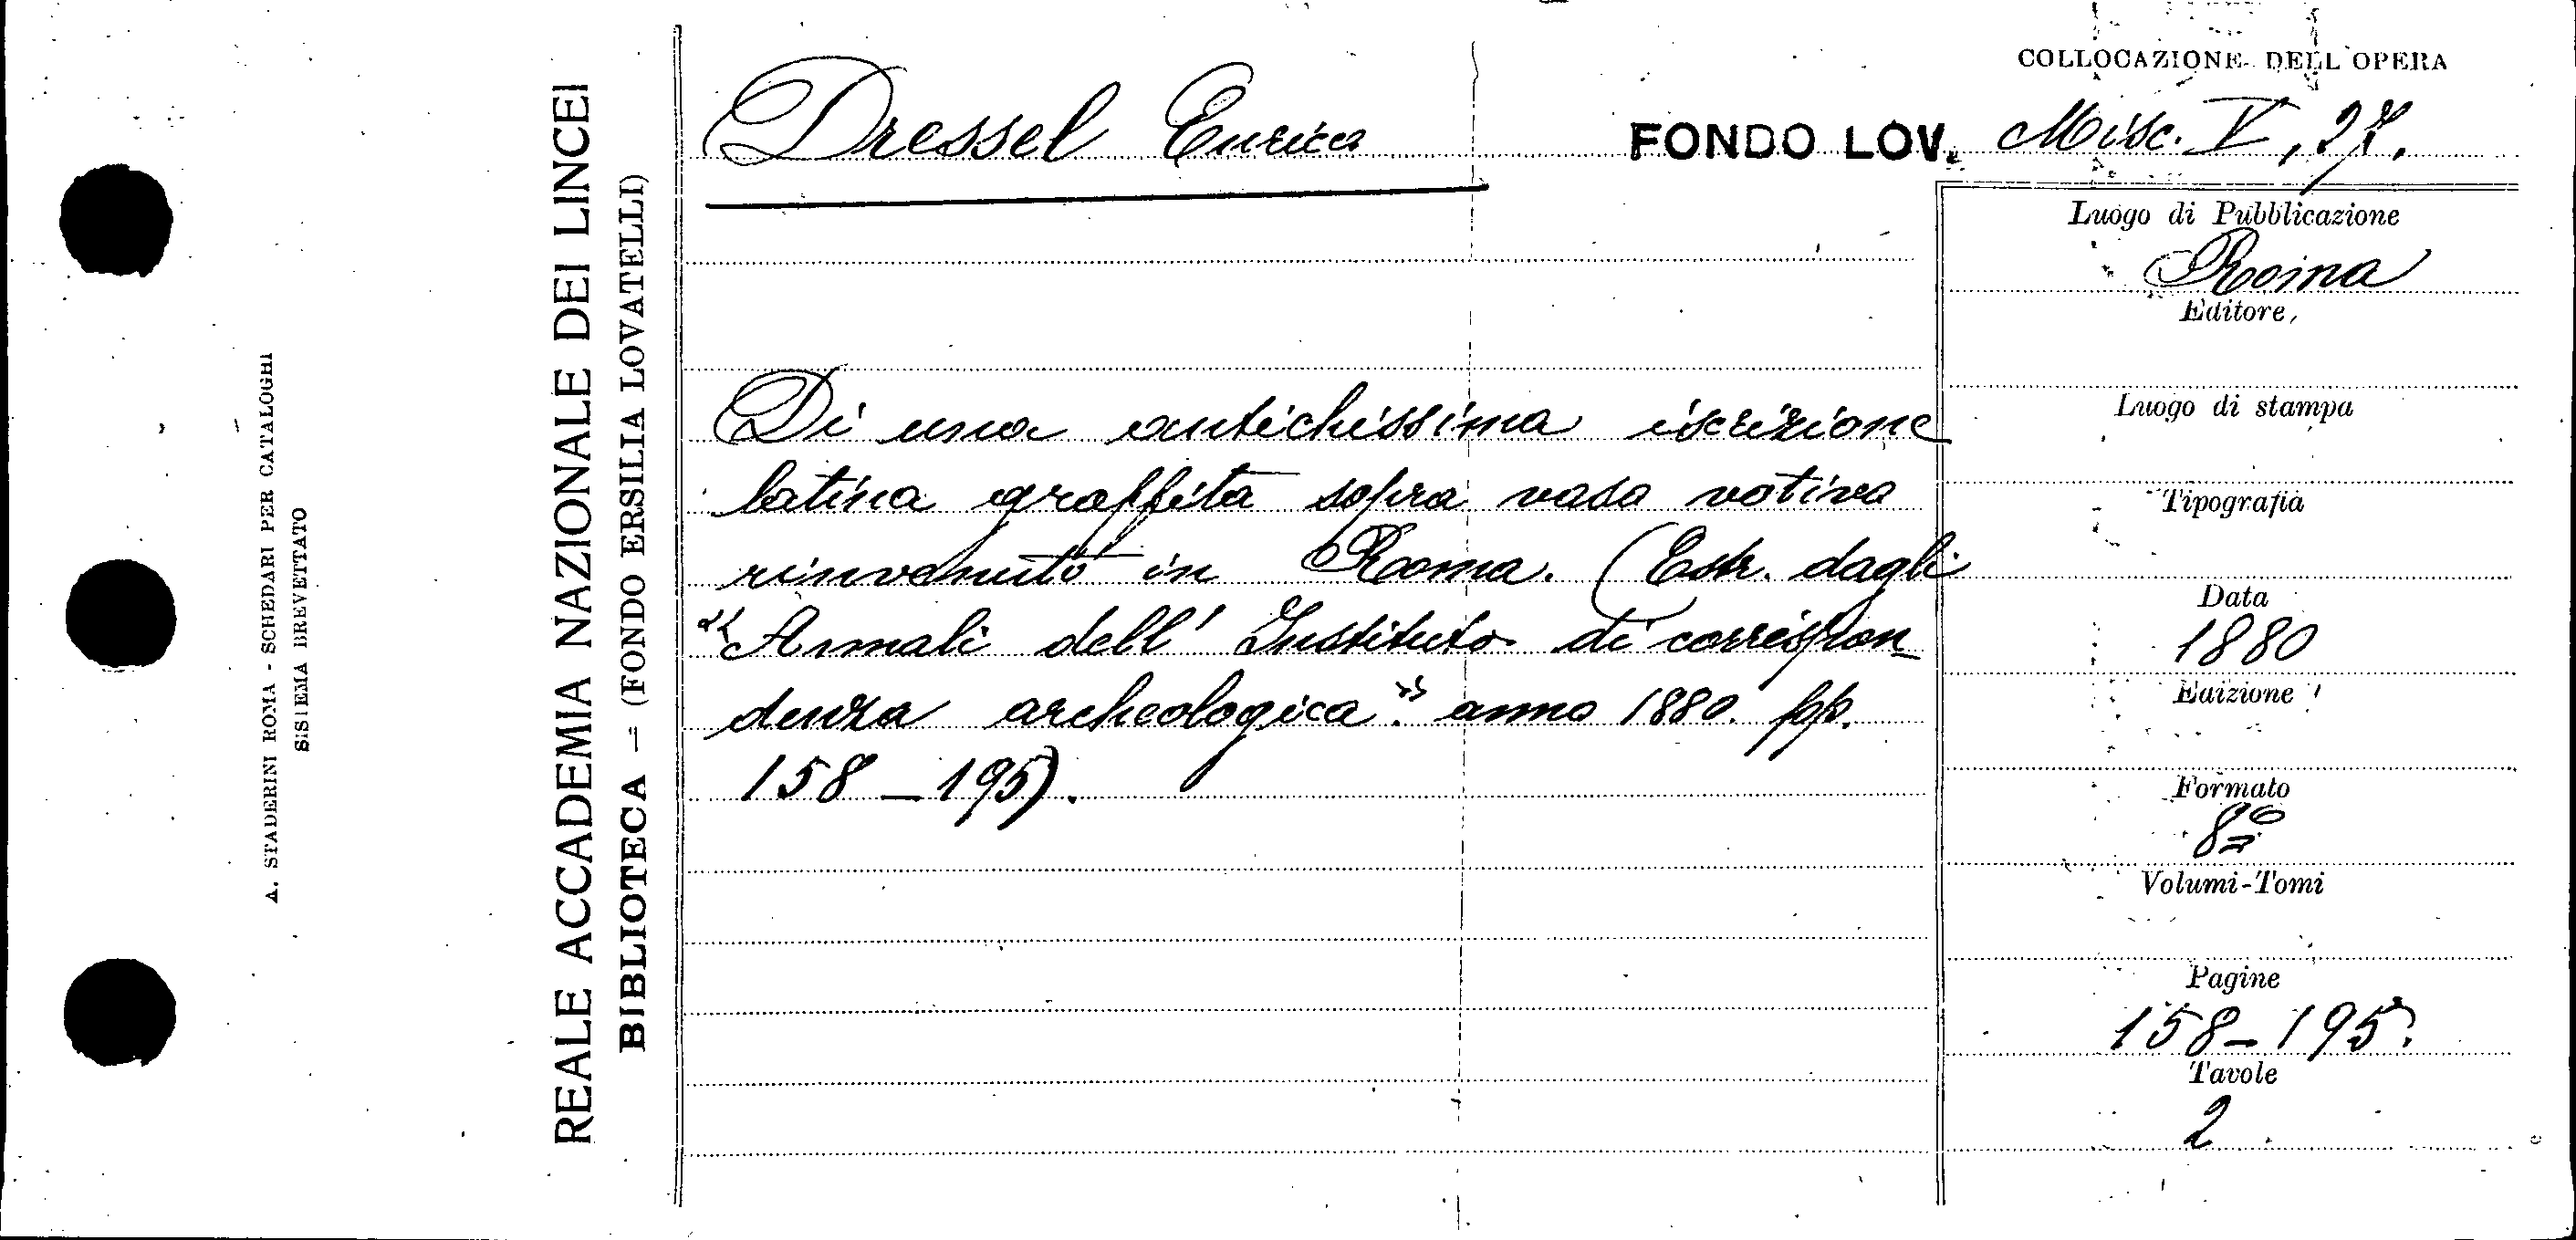 A. STADERINI ROMA - SCHEDARI PER CATALOGHI
SISTEMA BREVETTATO
REALE ACCADEMIA NAZIONALE DEI LINCEI
BIBLIOTECA = (FONDO ERSILIA LOVATELLI)
COLLOCAZIONE DELL'OPERA
Dressel Enrico
FONDO LOV. Misc. V, 27.
Di una antichissima iscrizione
latina graffita sopra vaso votivo
rinvenuto in Roma. (Estr. dagli
"Annali dell' Instituto di correspon
denza archeologica". anno 1880. pp.
158 - 195).
Luogo di Pubblicazione
Roma
Editore
Luogo di stampa
Tipografia
Data
1880
Edizione
Formato
8º
Volumi-Tomi
Pagine
158-195.
Tavole
2